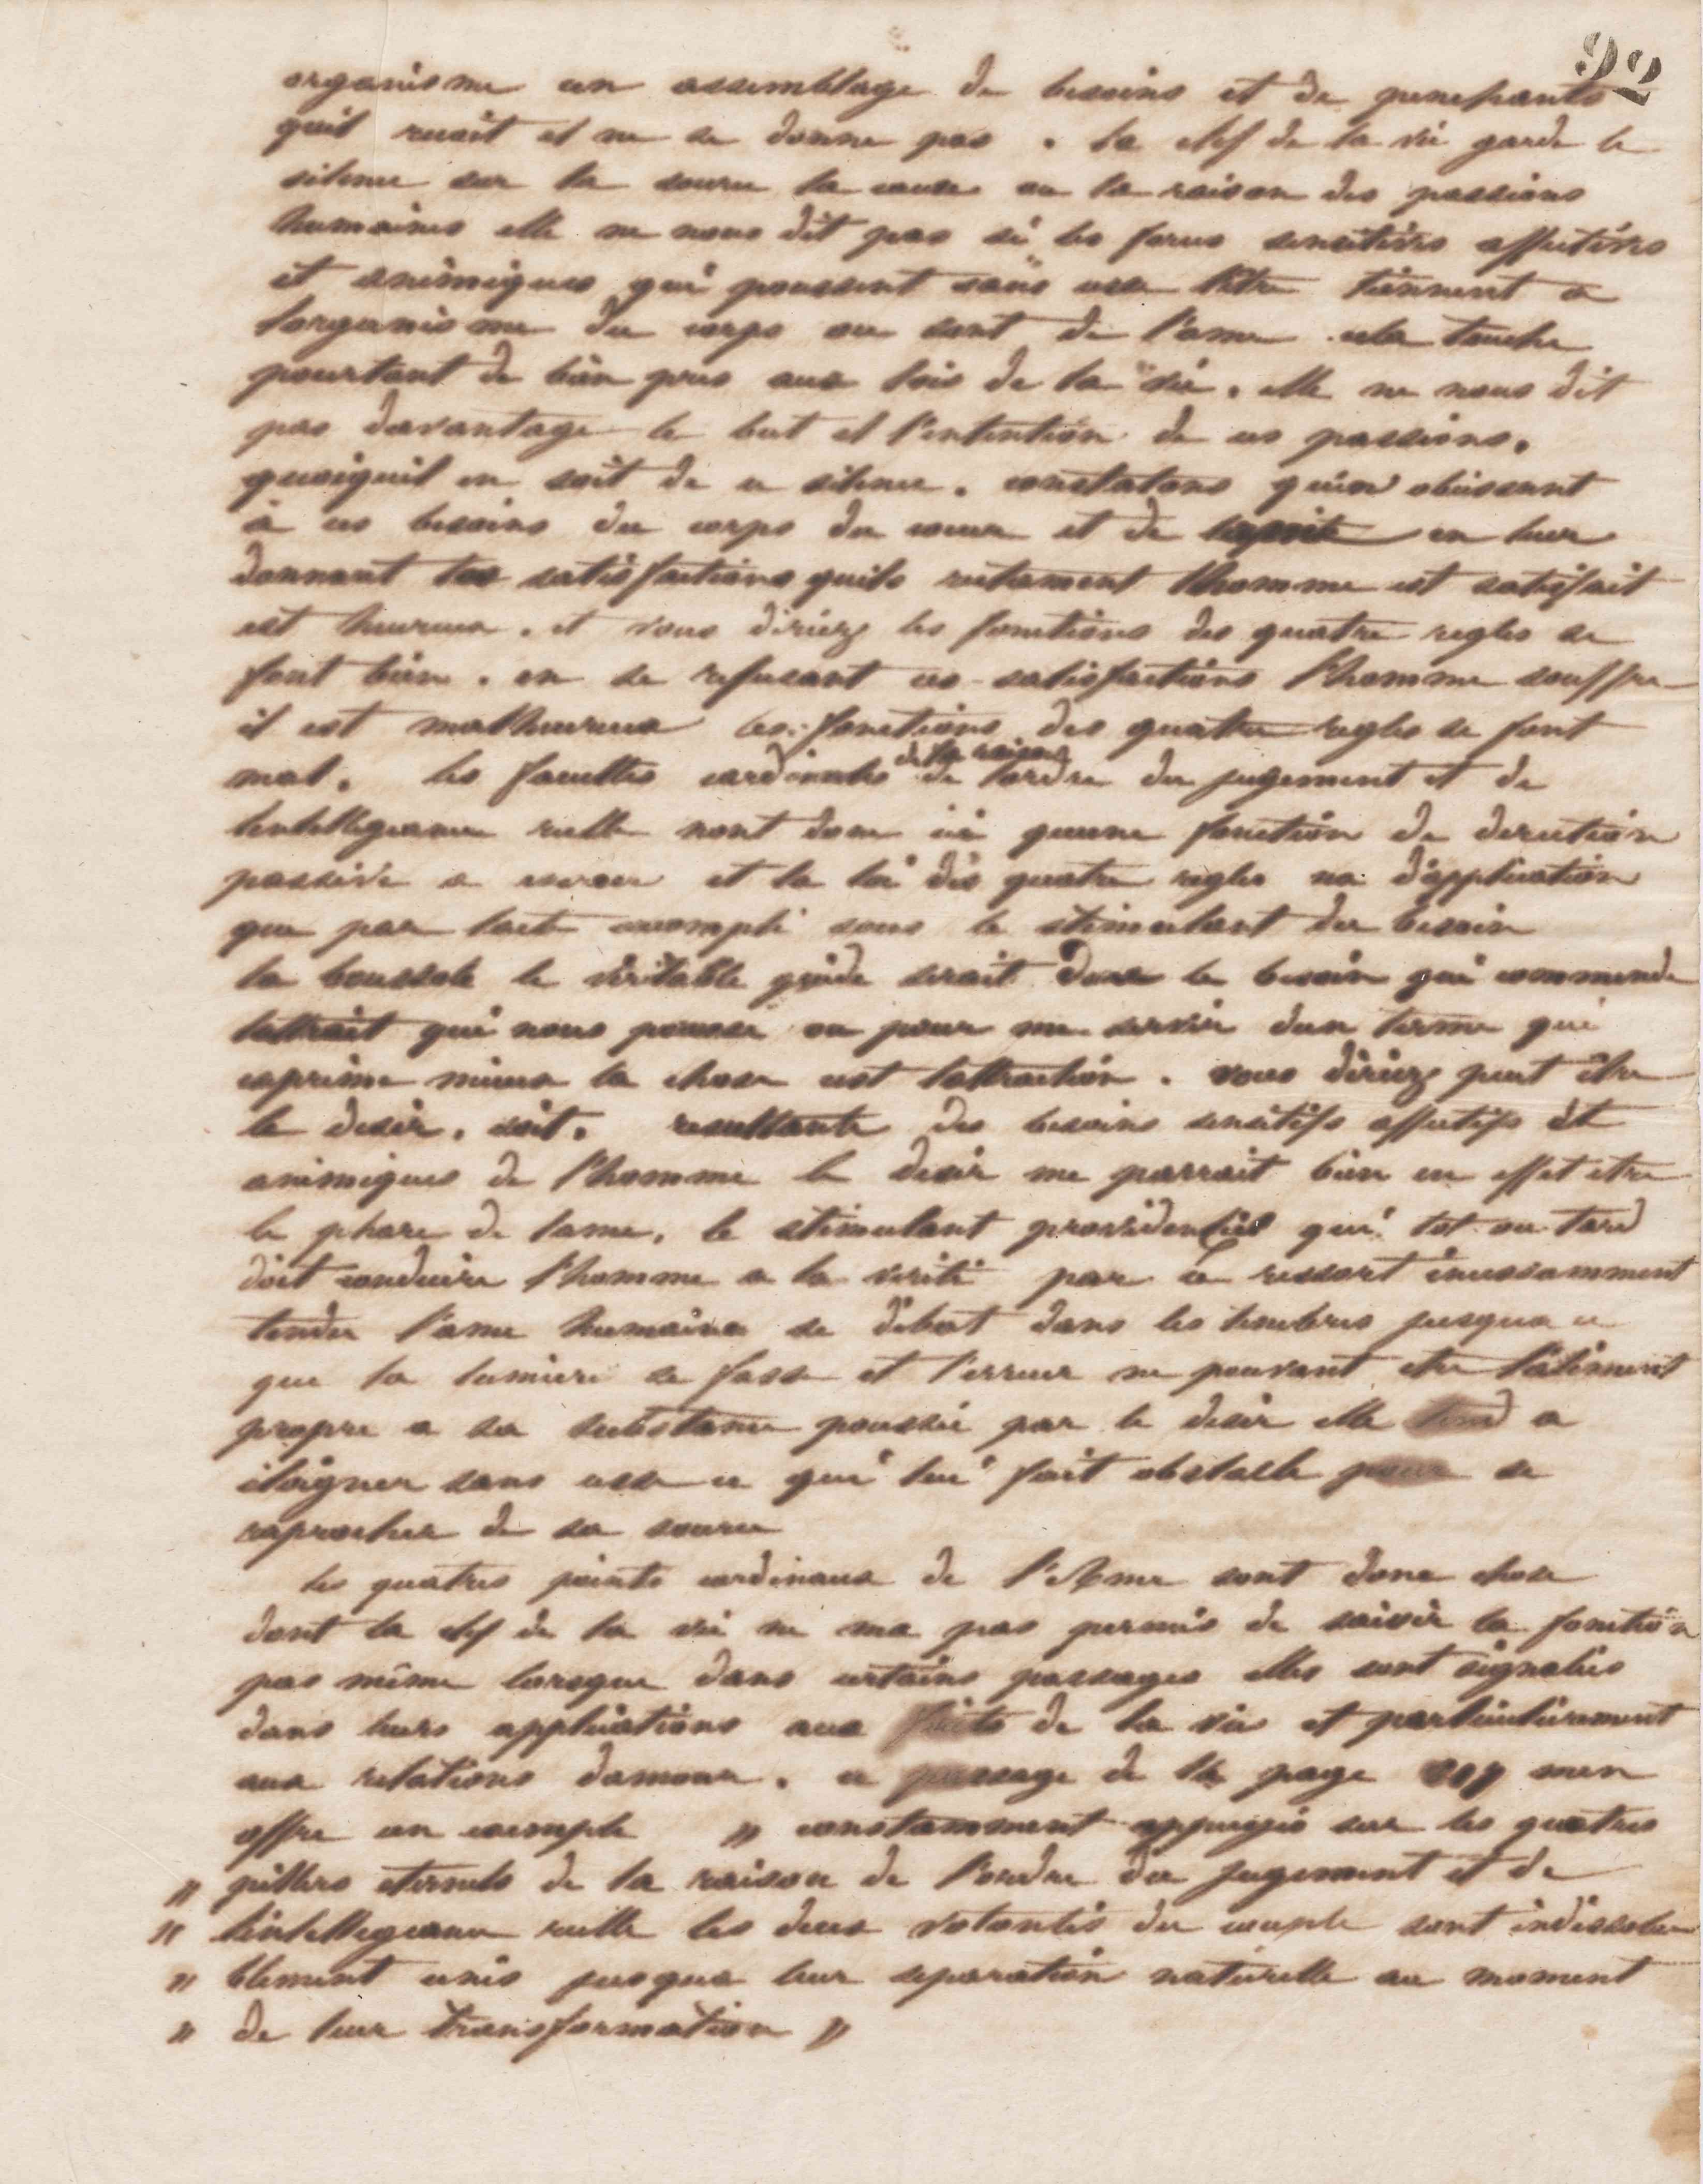 22
organisme un assemblage de besoins et de penchants
quil recoit et ne se donne pas . la clef de la vie garde le
silence sur la source la cause ou la raison des passions
humaines elle ne nous dit pas si les forces sensitives affectives
et animiques qui poussent sans cesse l'être tiennent a
lorganisme du corps ou sont de l'ame . cela touche
pourtant de bien pres aux lois de la vie . elle ne nous dit
pas davantage le but et l'intention de ces passions .
quoiquil en soit de ce silence . constatons quen obeissant
à ces besoins du corps du coeur et de lesprit en leur
donnant les satisfactions quils reclament lhomme est satisfait
est heureux . et vous diriez les fonctions des quatre regles se
font bien . en se refusant ces satisfactions l'homme souffre
il est malheureux les fonctions des quatre regles se font
de la raison
mal . les facultes cardinales de lordre du jugement et de
lintelligeance reelle nont donc ici quune fonction de direction
passive a exercer et la loi des quatre regles na d'application
que par lacte accompli sous le stimulant du besoin
la boussole le véritable guide serait donc le besoin qui commende
lattrait qui nous pousse ou pour me servir dun terme qui
exprime mieux la chose cest lattraction . vous diriez peut être
le desir . soit . resultante des besoins sensitifs affectifs et
animiques de l'homme le desir me parrait bien en effet etre
le phare de lame , le stimulant providentiel qui tot ou tard
doit conduire l'homme a la verité par ce ressort incessamment
tendu l'ame humaine se débat dans les tenebres jusqua ce
que la lumiere se fasse et l'erreur ne pouvant etre l'aliment
propre a sa substance poussée par le desir elle tend a
eloigner sans cesse ce qui lui fait obstacle pour se
raprocher de sa source
les quatres points cardinaux de l'Ame sont donc chose
dont la clef de la vie ne ma pas permis de saisir la fonction
pas même lorsque dans certains passages elles sont signalées
dans leurs applications aux faits de la vie et particulierement
aux relations damour . ce passage de la page men
offre un exemple " constamment appuyés sur les quatres
" pilliers eternels de la raison de l'ordre du jugement et de
" lintelligeance reelle les deux volontés du couple sont indissolu
" blement unis jusqua leur separation naturelle au moment
" de leur transformation "